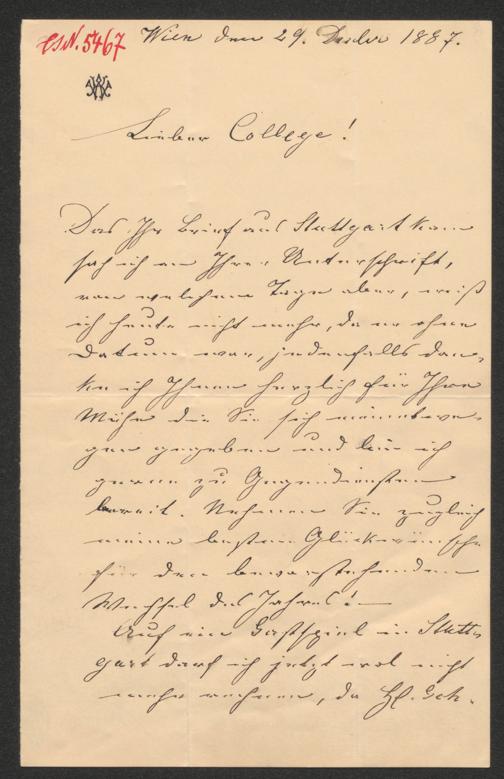 CSN. 5467 Wien den 29. Decbr 1887.
Lieber College!
Das Ihr Brief aus Stuttgart kam
sah ich an Ihrer Unterschrift,
von welchem Tage aber, weiß
ich heute nicht mehr, da er ohne
Datum war, jedenfalls dan-
ke ich Ihnen herzlich für Ihre
Mühe die Sie sich meinetwe-
gen gegeben und bin ich
gerne zu Gegendiensten
bereit. Nehmen Sie zugleich
meine besten Glückwünsche
für den bevorstehenden
Wechsel des Jahres! —
Auf ein Gastspiel in Stutt-
gart darf ich jetzt wol nicht
mehr rechnen, da